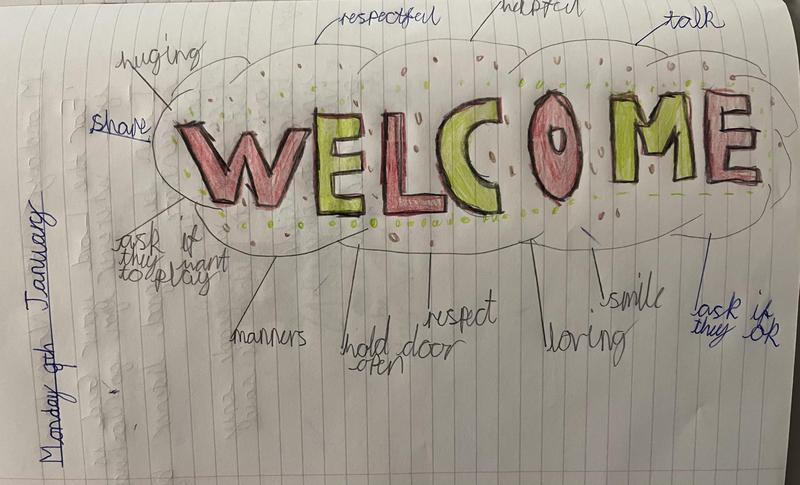 respectful
helpful
talk
huging
share
WELCOME
ask if
they want
to play
manners
hold door
open
respect
loving
smile
ask if
they ok
Monday 9th January